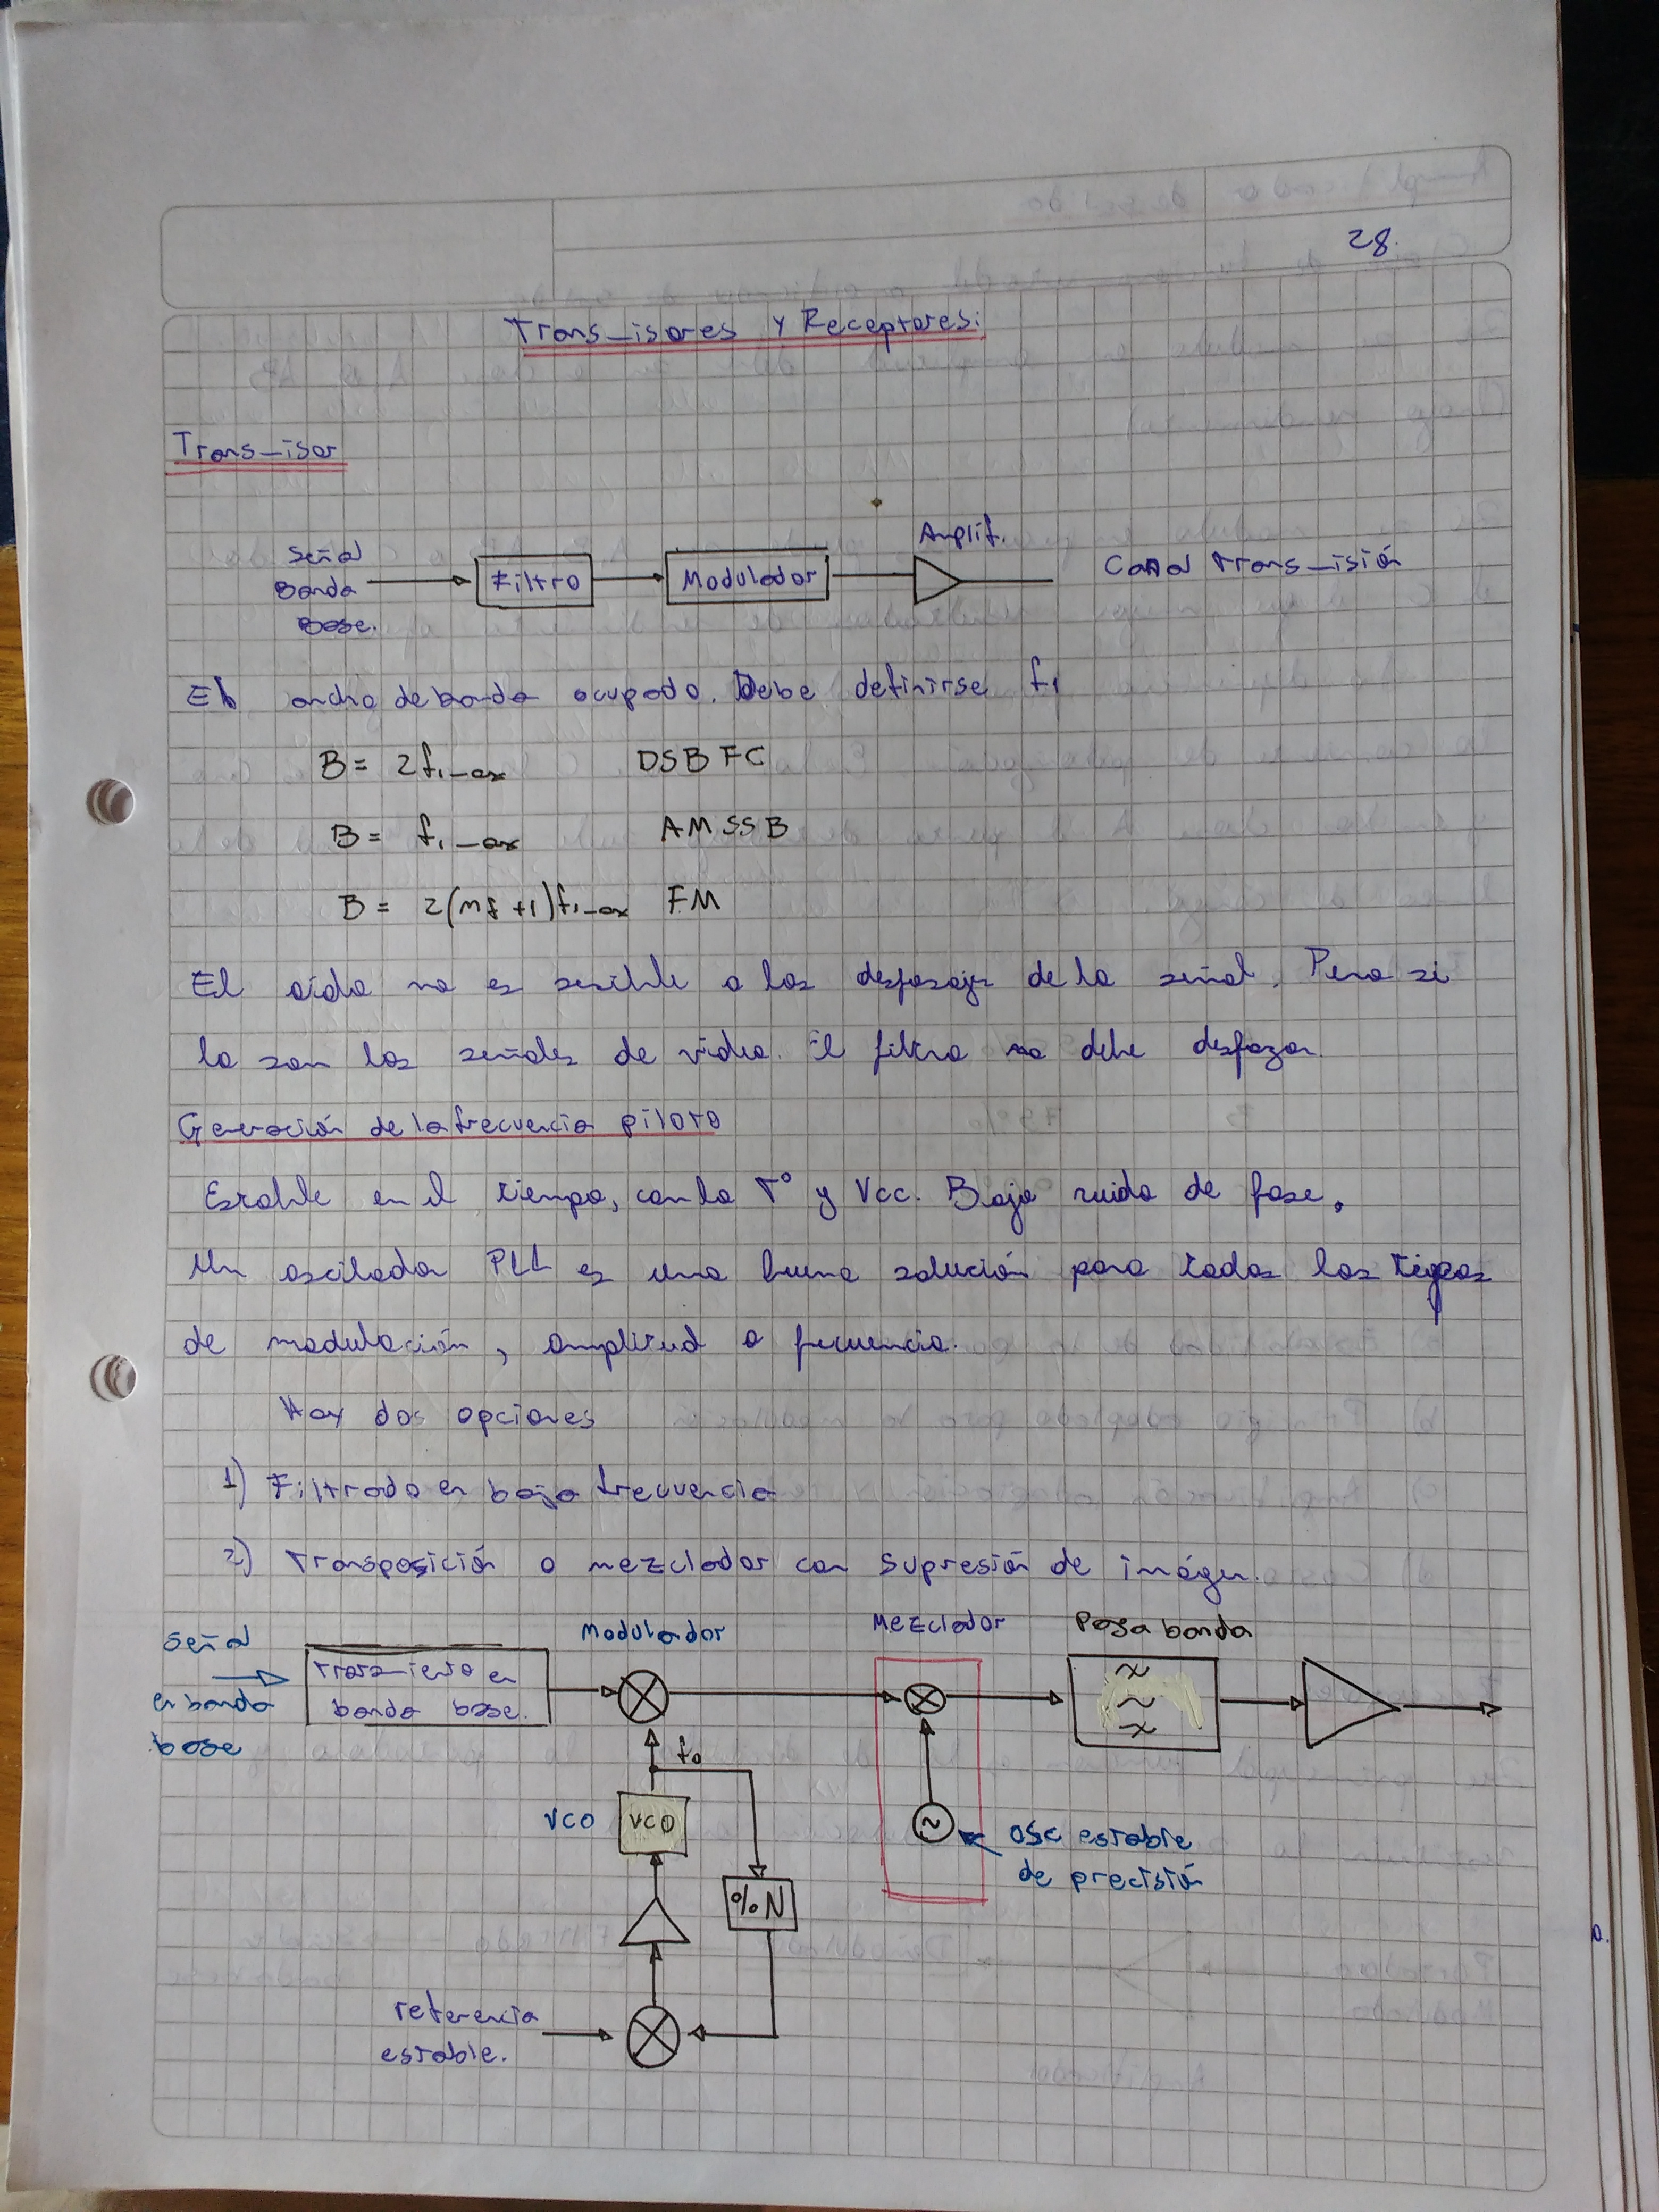 28.
Transmisores y Receptores:
Transmisor
Señal
Banda
Base.
Filtro
Modulador
Amplif.
Canal transmisión
El ancho de banda ocupado. Debe definirse f1
B = 2f1max DSB FC
B = f1max AM SSB
B = 2(mf +1)f1max FM
El oido no es sensible a los desfasajes de la señal. Pero si
lo son las señales de video. El filtro no debe desfazar.
Generación de la frecuencia piloto
Estable en el tiempo, con la T° y Vcc. Bajo ruido de fase.
Un oscilador PLL es una buena solución para todos los tipos
de modulación, amplitud o frecuencia.
Hay dos opciones
1) Filtrado en baja frecuencia
2) Transposición o mezclador con supresión de imágen.
Señal
en banda
base
Tratamiento en
banda base.
Modulador
Mezclador
Pasa banda
f0
VCO
VCO
%N
osc estable
de precisión
referencia
estable.